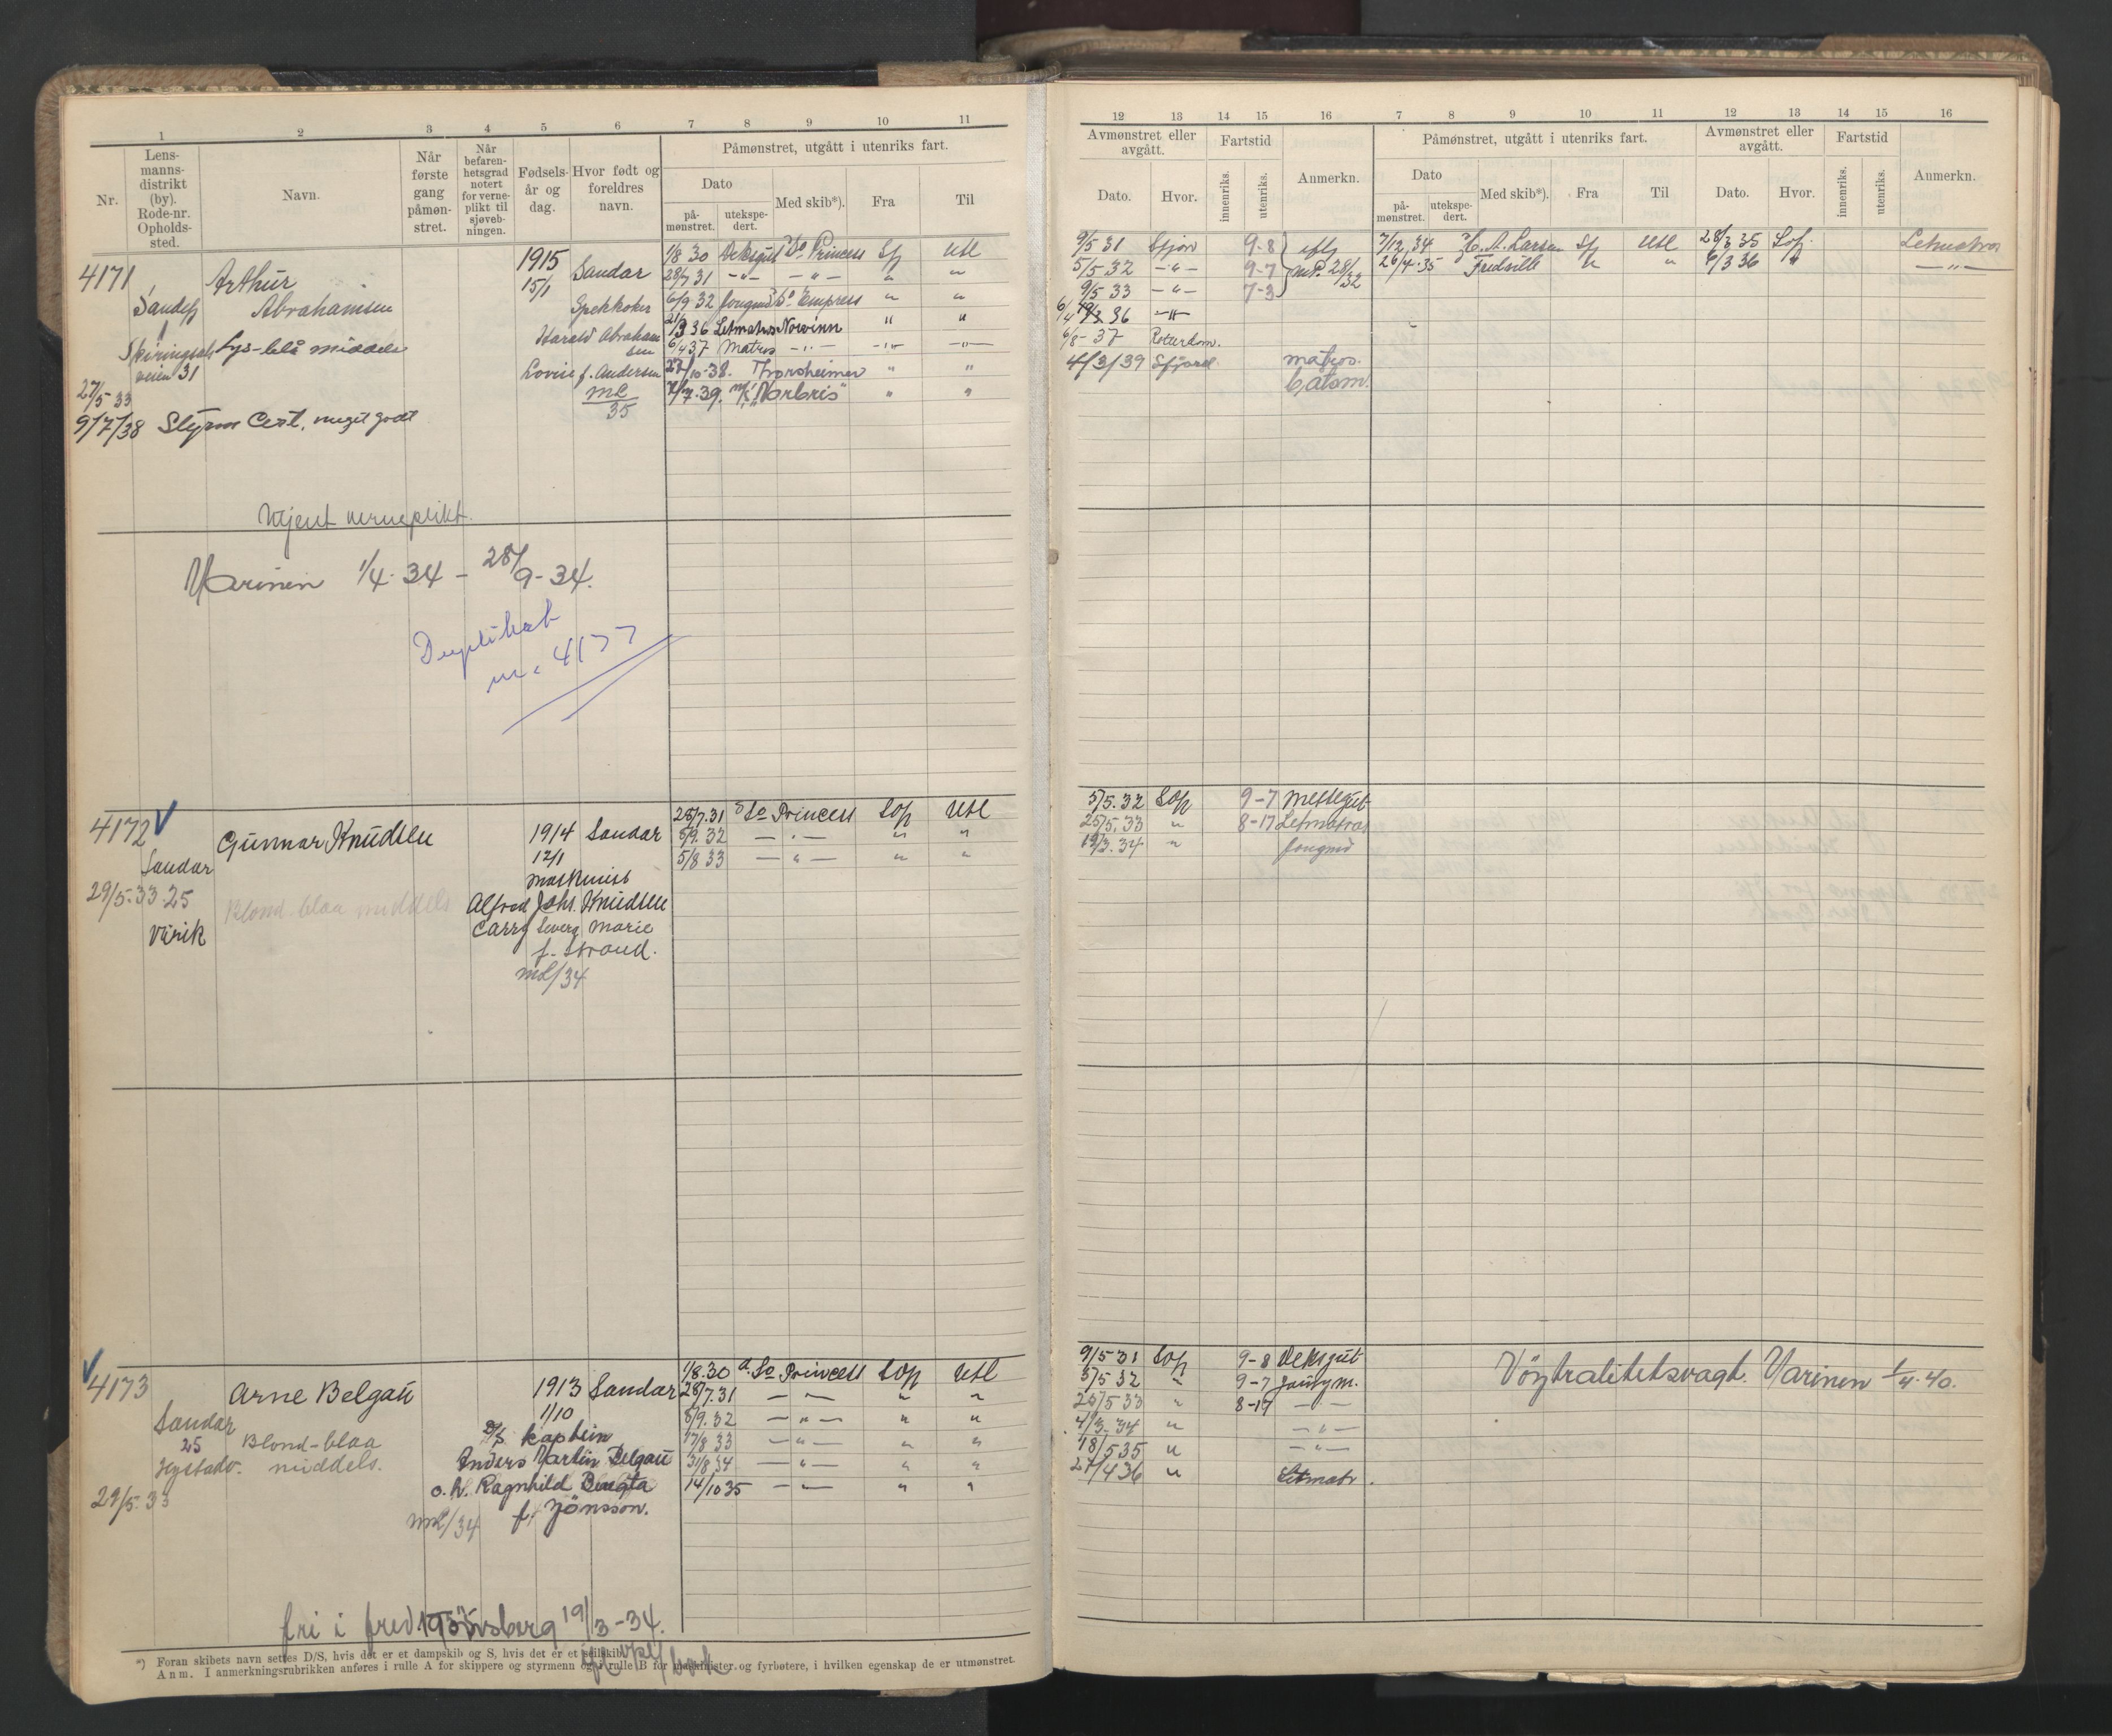 1 2 3 4 5 6 7 8 9 10 11
Nr.
Lens-
manns-
distrikt
(by).
Rode-nr.
Opholds-
sted.
Navn.
Når
første
gang
påmøn-
stret.
Når
befaren-
hetsgrad
notert
for verne-
plikt til
sjøveb-
ningen.
Fødsels-
år og
dag.
Hvor født og
foreldres
navn.
Påmønstret, utgått i utenriks fart.
Dato
på-
mønstret.
utekspe-
dert.
Med skib*).
Fra
Til
4171 Arthur 1915 Sandar
Sandefj Abrahamsen 15/1 Spekkoker
1 Harald Abraham
sen
Skiringsals Lys-blå middels
veien 31 Lovise f. Andersen
27/5 33 ML
35
9/7/38 Styrm Cert. meget godt
1/8 30 Deksgut So. Princess Sfj Utl
28/7 31 -"- -"- " "
6/9 32 Jungmd So. Empress " "
21/3 36 Letmatros Norvinn " "
6/4 37 Matros -"- -"- -"-
27/10-38. Thorsheimer " "
7/7.39. M/K "Norbris" " "
Utjent verneplikt.
Marinen 1/4.34 - 28/9-34.
Duplikat
nr. 4177
4172 Gunnar Knudsen 1914 Sandar
Sandar 12/1
maskinist
29/5.33.25 Blond-blaa middels Alfred Johs. Knudsen
Virik Marie
f. Strand.
ML/34
28/7.31 So Princess Sofj Utl
5/9.32 -"- " "
5/8 33 -"- " "
4173 Arne Belgau 1913 Sandar
Sandar 1/10
25 Blond-blaa kaptein
middels. Anders Martin Belgau
29/5.33 o. h. Ragnhild Bengta
ML/34 f. Jönsson.
1/8.30 So Princess Sofj Utl
28/7.31 -"- " "
5/9.32 -"- " "
17/8 33 -"- " "
31/8 34 -"- " "
14/10 35 -"- " "
fri i fred Tønsberg 19/3-34.
*) Foran skibets navn settes D/S, hvis det er et dampskib og S, hvis det er et seilskib.
Anm. I anmerkningsrubrikken anføres i rulle A for skippere og styrmenn og i rulle B for maskinister og fyrbøtere, i hvilken egenskap de er utmønstret.
12 13 14 15 16 7 8 9 10 11 12 13 14 15 16
Avmønstret eller
avgått.
Dato.
Hvor.
Fartstid
innenriks.
utenriks.
Anmerkn.
Påmønstret, utgått i utenriks fart.
Dato
på-
mønstret.
utekspe-
dert.
Med skib*).
Fra
Til
Avmønstret eller
avgått.
Dato.
Hvor.
Fartstid
innenriks.
utenriks.
Anmerkn.
9/5 31 Sfjor 9-8 7/12.34 C. A. Larsen Sfj Utl 28/3 35 Sofj. Letmatros
5/5 32 -"- 9-7 28/32 26/4.35 Fredville " " 6/3 36 " -"-
9/5 33 -"- 7-3
36 -"-
6/8-37 Roterdam.
4/3/39 Sfjord matros.
båtsm.
5/5.32 Sofj 9-7 Messegut
25/5.33 " 8-17 Letmatros
12/3.34 " Jungmd
9/5 31 Sofj 9-8 Deksgut
5/5 32 " 9-7 Jungm.
25/5 33 " 8-17 -"-
4/3-34 " -"-
18/5 35 " -"-
27/4 36 " Letmatr.
Nøytralitetsvagt. Marinen 1/4.40.